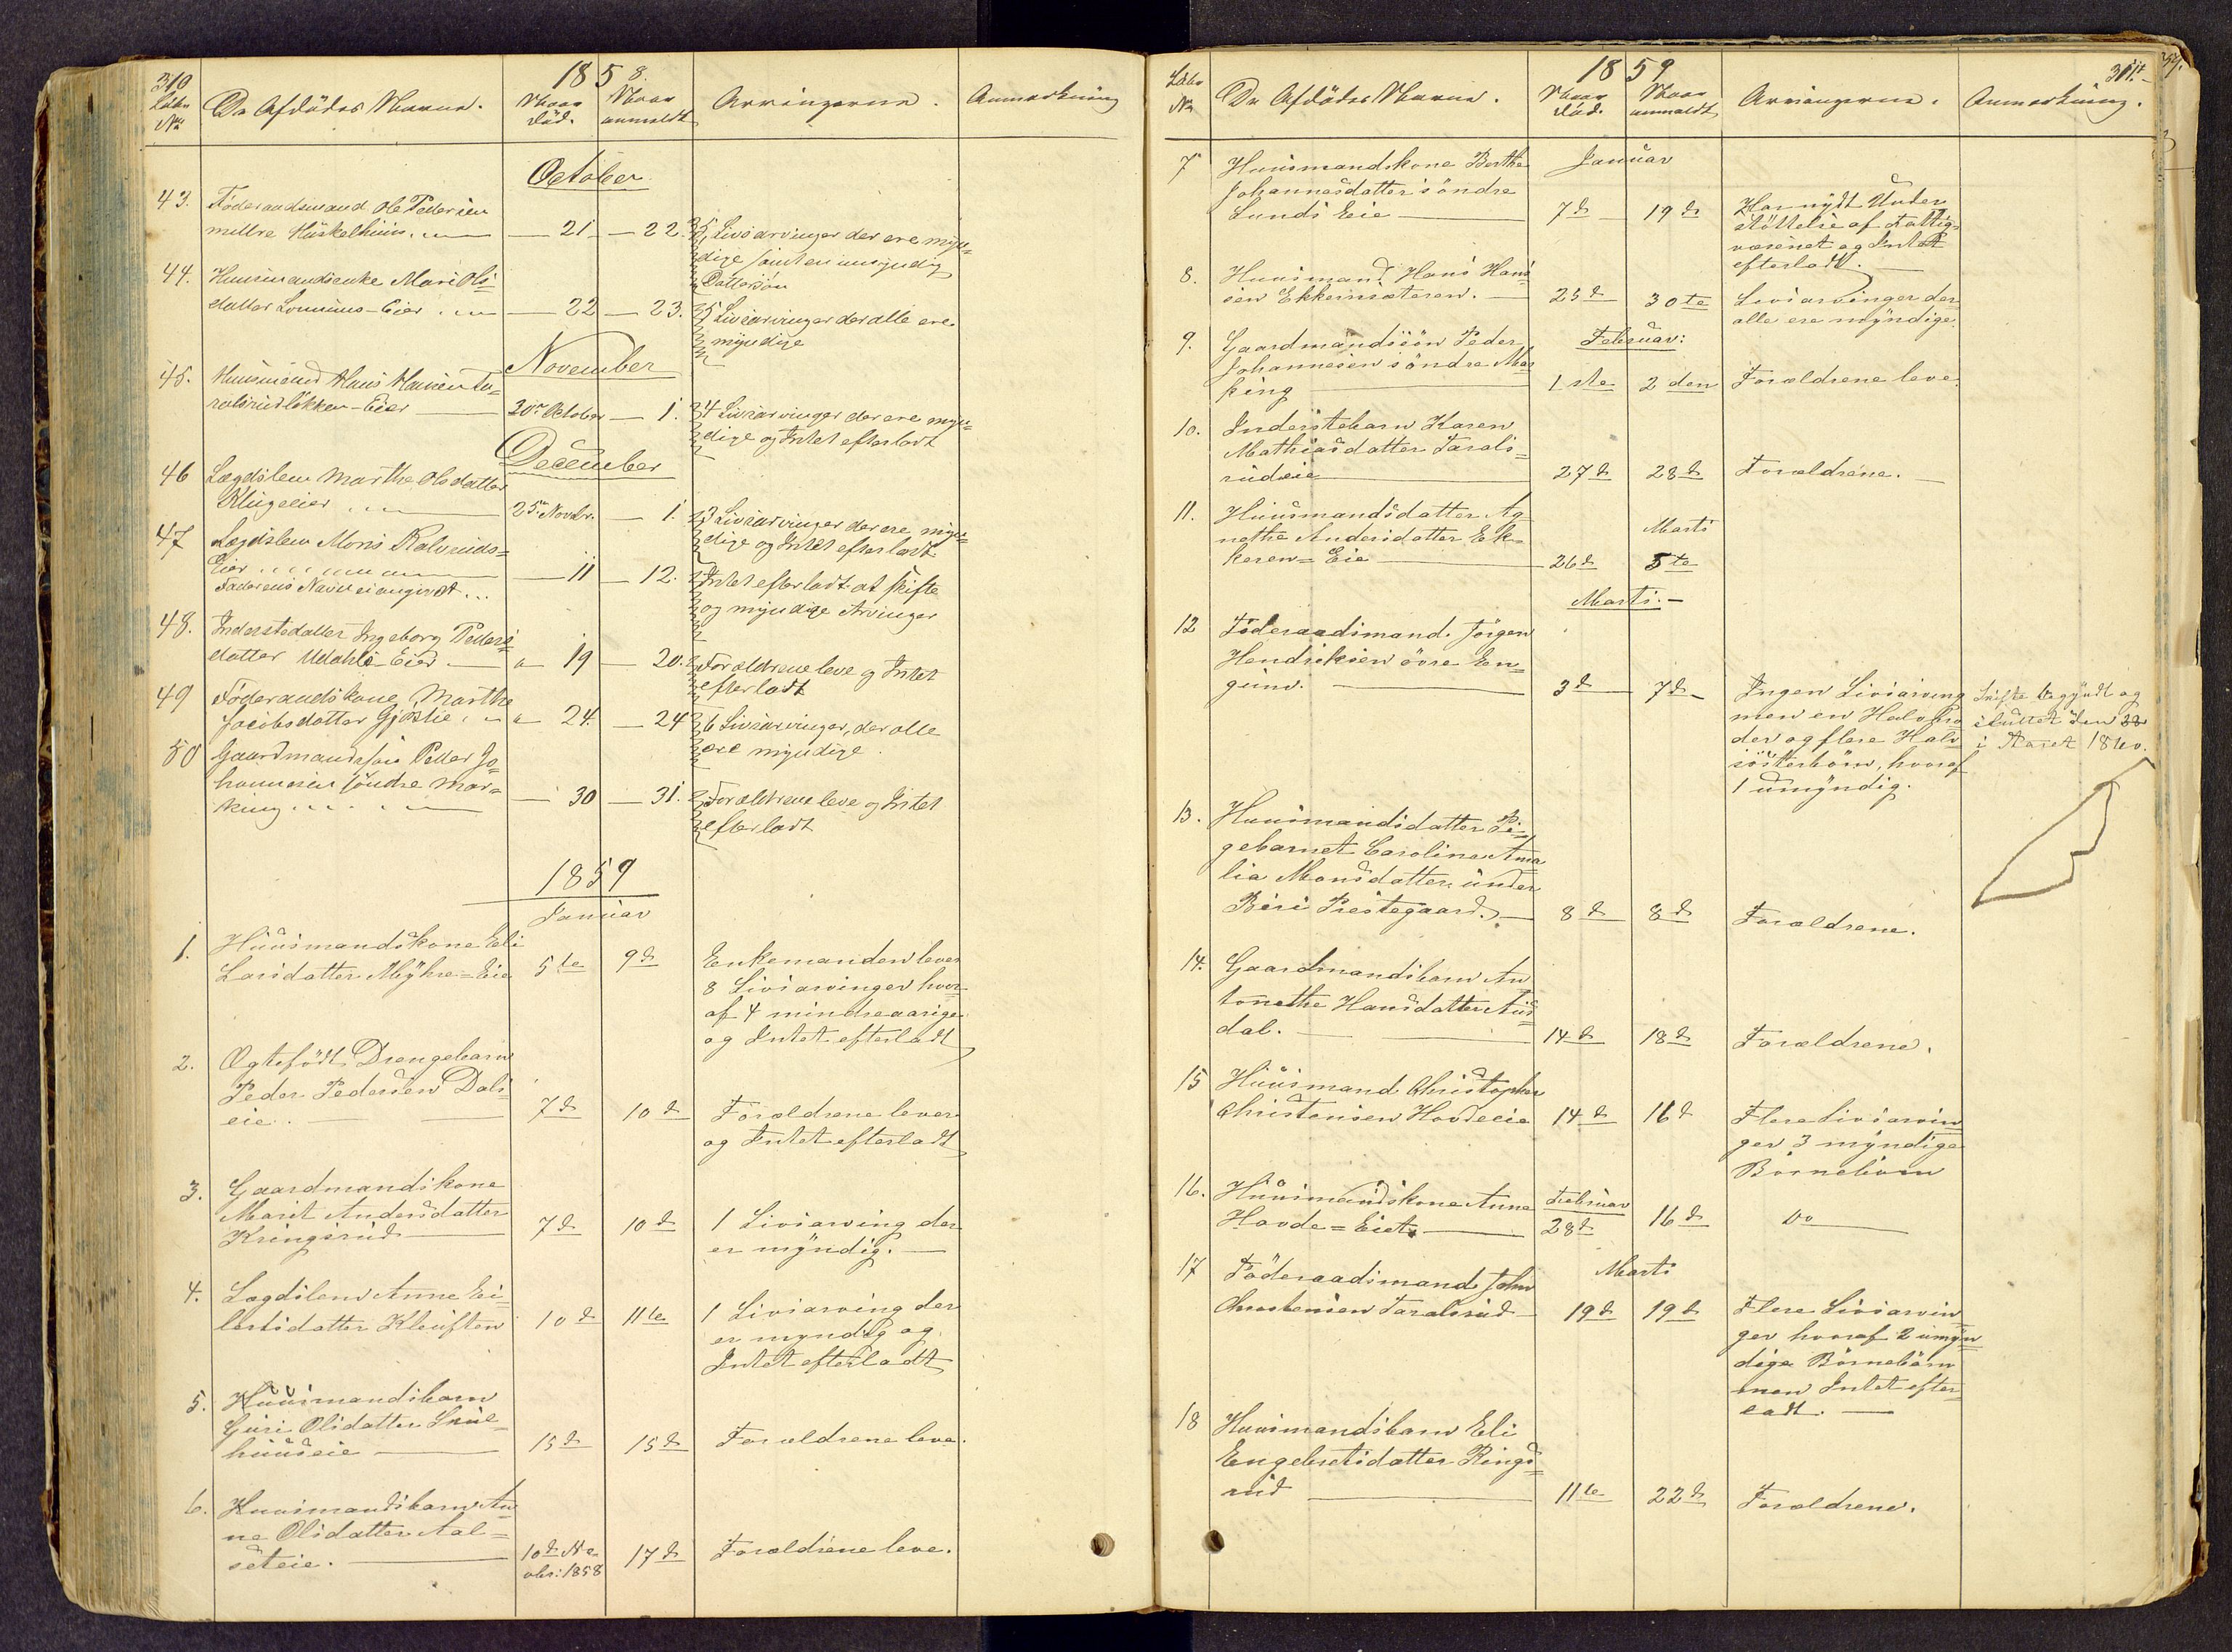 310
1858.
Løbe
No
De Afdødes Navne.
Naar
død.
Naar
anmeldt
Arvingerne.
Anmærkning
October
43. Føderaadsmand Ole Pedersen
mellre — 21 — 22. 5 Livsarvinger der ere myn=
dige samt en umyndig
Dattersøn
44. Huusmandsenke Mari Ols=
datter — Eier — 22 — 23. 5 Livsarvinger der alle ere
myndige
November
45. Huusmand Hans Hansen Ta=
ralsrudløkken-Eier — 30te October — 1. 4 Livsarvinger der ere myn=
dige og Intet efterladt
December
46 Lægdslem Marthe Olsdatter
Klugeeier 25de Novbr. — 1. 3 Livsarvinger der ere myn=
dige og Intet efterladt
47 Lægdslem Moris Kalveruds=
Eier — 11 — 12. Intet efterladt at skifte
Faderens Navn ei angivet ... og myndige Arvinger
48. Inderstedatter Ingeborg Peders=
datter Udahls-Eier — 19 — 20. Forældrene leve og Intet
efterladt
49 Føderaadskone Marthe
Jacobsdatter Gjøstie — 24. — 24 6 Livsarvinger, der alle
ere myndige.
50 Gaardmandssøn Peder Jo=
hannesen søndre Mær=
king — 30 — 31. Forældrene leve og Intet
efterladt
1859
Januar
1. Huusmandskone Eli
Larsdatter Myhre=Eie 5te 9d Enkemanden lever
8 Livsarvinger hvor=
af 4 mindreaarige
og Intet efterladt
2. Ægtefødt Drengebarn
Peder Pedersen Dals
eie. 7d 10d Forældrene lever
og Intet efterladt
3. Gaardmandskone
Marit Andersdatter
Kringsrud 7d 10d 1 Livsarving der
er myndig.
4. Lægdslem Anne Ei=
lertsdatter Kleuften 10d 11te 1 Livsarving der
er myndig og
Intet efterladt
5. Huusmandsbarn
Guri Olsdatter Skul=
huuseie 15d 15d Forældrene leve.
6. Huusmandsbarn An=
ne Olsdatter Aal=
seteie. 10d No
vbr: 1858 17d Forældrene leve.
1859
311.
Løbe
No
De Afdødes Navne.
Naar
død.
Naar
anmeldt
Arvingerne.
Anmærkning.
7 Huusmandskone Berthe Januar
Johannesdatter søndre
Lunds Eie 7d 19d Har nydt Under
støttelse af Fattig=
væsenet og Intet
efterladt.
8. Huusmand Hans Hans
sen Ekkernsæteren. 25d 30te Livsarvinger der
alle ere myndige.
9. Gaardmandssøn Peder Februar:
Johannesen søndre Mær
king 1ste 2den Forældrene leve.
10. Inderstebarn Karen
Mathiasdatter Tarals=
rudeie 27d 28d Forældrene.
11. Huusmandsdatter Ag
nethe Andersdatter Ek= Marts
keren=Eie 26d 5te
Marts.
12 Føderaadsmand Jørgen
Hendriksen øvre En=
gum. 3d 7d Ingen Livsarving
men en Halvbro
der og flere Halv
søsterbørn, hvoraf
1 umyndig.
Skifte begyndt og
sluttet den
i Aaret 1860.
13. Huusmandsdatter Pi=
gebarnet Caroline Ama
lia Monsdatter under
Biri Præstegaard. 8d 8d Forældrene.
14. Gaardmandsbarn An
tonethe Hansdatter Aus
dal. 14d 18d Forældrene.
15 Huusmand Christopher
Christensen Hovdeeie 14d 16d Flere Livsarvin
ger 3 myndige
Børnebørn
16. Huusmandskone Anne Februar
Hovde=Eiet. 28d 16d Do
17 Føderaadsmand John Marts
Christensen Taralsrud 19d 19d Flere Livsarvin
ger hvoraf 2 umyn
dige Børnebørn
men Intet efter=
ladt.
18 Huusmandsbarn Eli
Engebretsdatter Rings=
rud 11te 22d Forældrene.